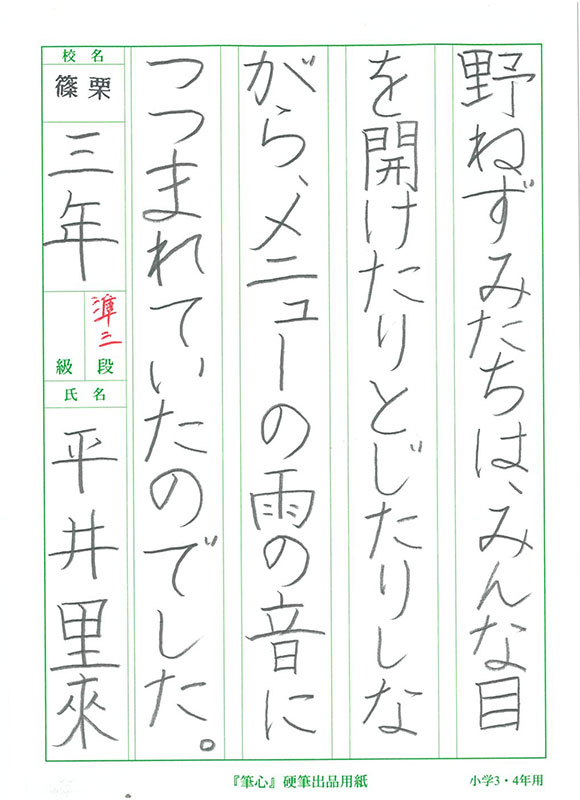 野ねずみたちは、みんな目
を開けたりとじたりしな
がら、メニューの雨の音に
つつまれていたのでした。
校名
篠栗
三年
準三
段
級
氏名
平井里來
『筆心』硬筆出品用紙
小学3・4年用